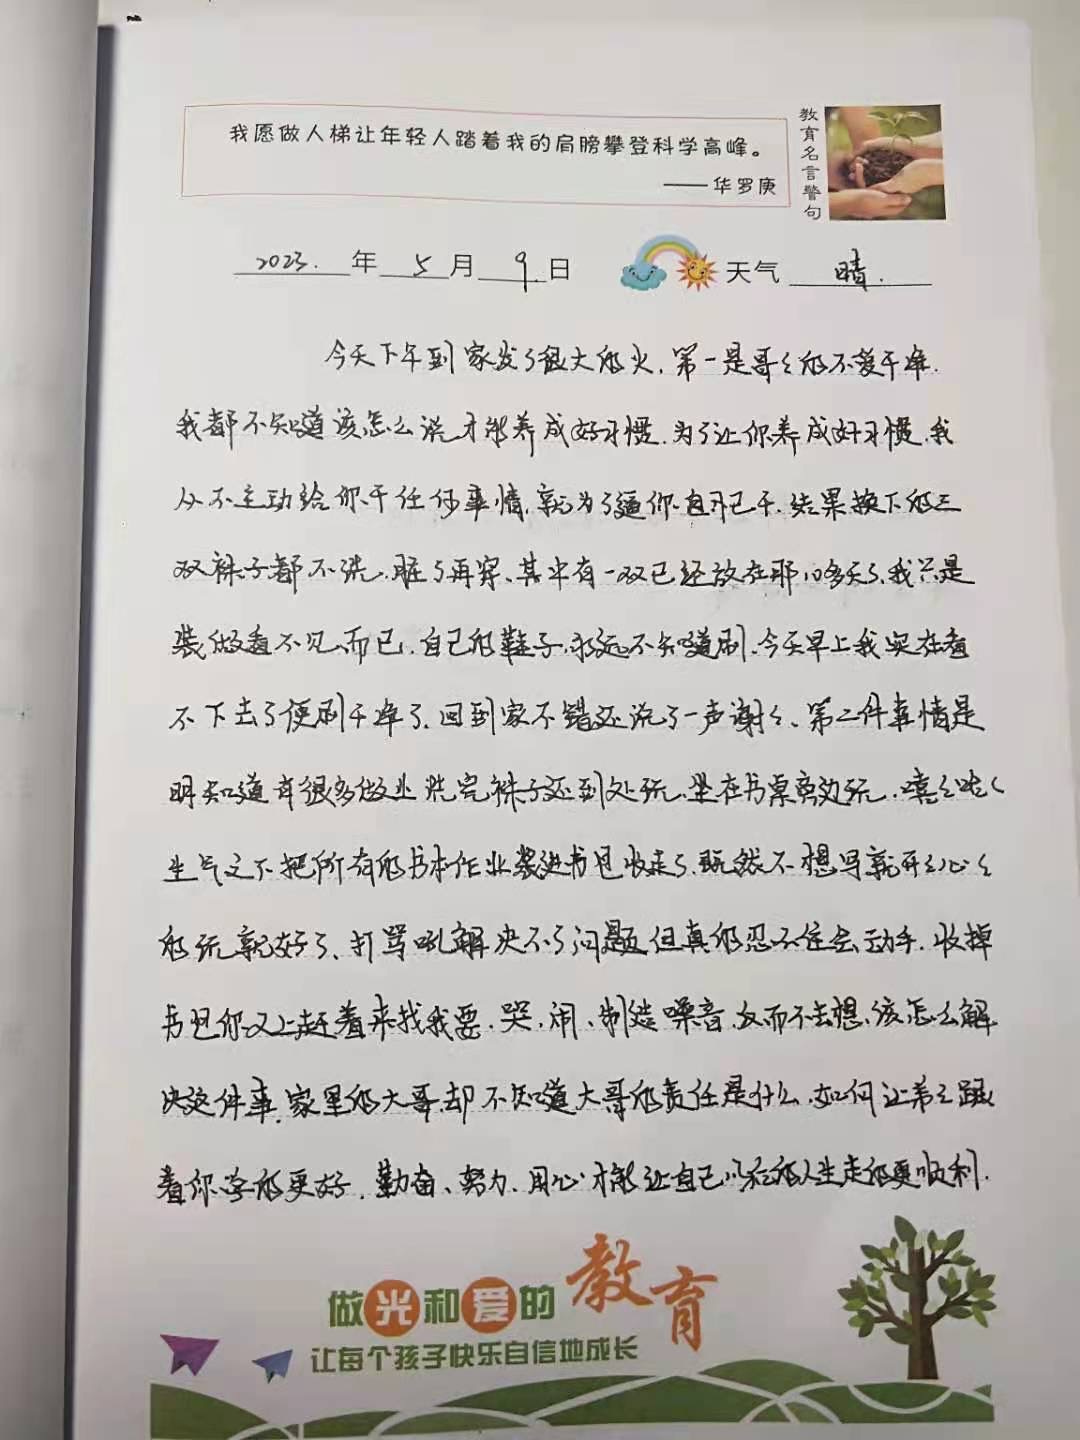 我愿做人梯让年轻人踏着我的肩膀攀登科学高峰。
——华罗庚
教育名言警句
2023.年5月9日 天气 晴.
今天下午到家发了很大的火,第一是哥々的不爱干净.
我都不知道该怎么说才能养成好习惯.为了让你养成好习惯,我
从不主动给你干任何事情,就为了逼你自己干.结果换下的三
双袜子都不洗、脏了再穿、其中有一双已经放在那10多天了,我只是
装做看不见而已,自己的鞋子,永远不知道刷,今天早上我实在看
不下去了便刷干净了、回到家不错还说了一声谢々、第二件事情是
明知道有很多做业洗完袜子还到处玩、坐在书桌旁边玩,嘻々哈々
生气之下把所有的书本作业装进书包收走了,既然不想写就开々心々
的玩就好了、打骂吼解决不了问题但真的忍不住会动手.收掉
书包你又上赶着来找我要.哭,闹、制造噪音,反而不去想,该怎么解
决这件事,家里的大哥却不知道大哥的责任是什么,如何让弟々跟
着你学的更好.勤奋、努力、用心才能让自己以后的人生走的更顺利.
做光和爱的教育
让每个孩子快乐自信地成长